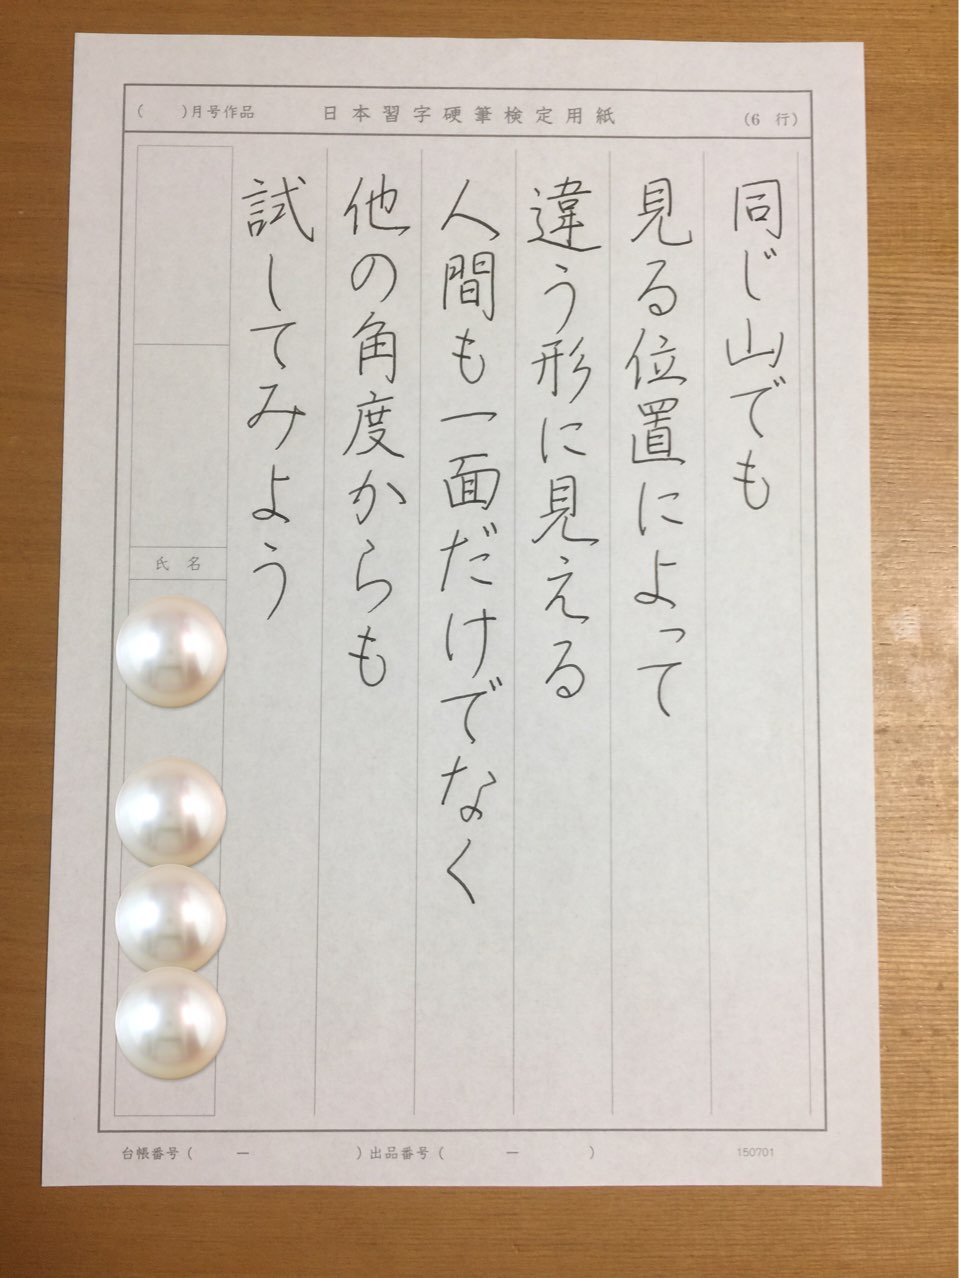 (　　)月号作品　日本習字硬筆検定用紙　(6　行)
同じ山でも
見る位置によって
違う形に見える
人間も一面だけでなく
他の角度からも
試してみよう
氏　名
台帳番号（　　－　　　　）出品番号（　　－　　　）　150701